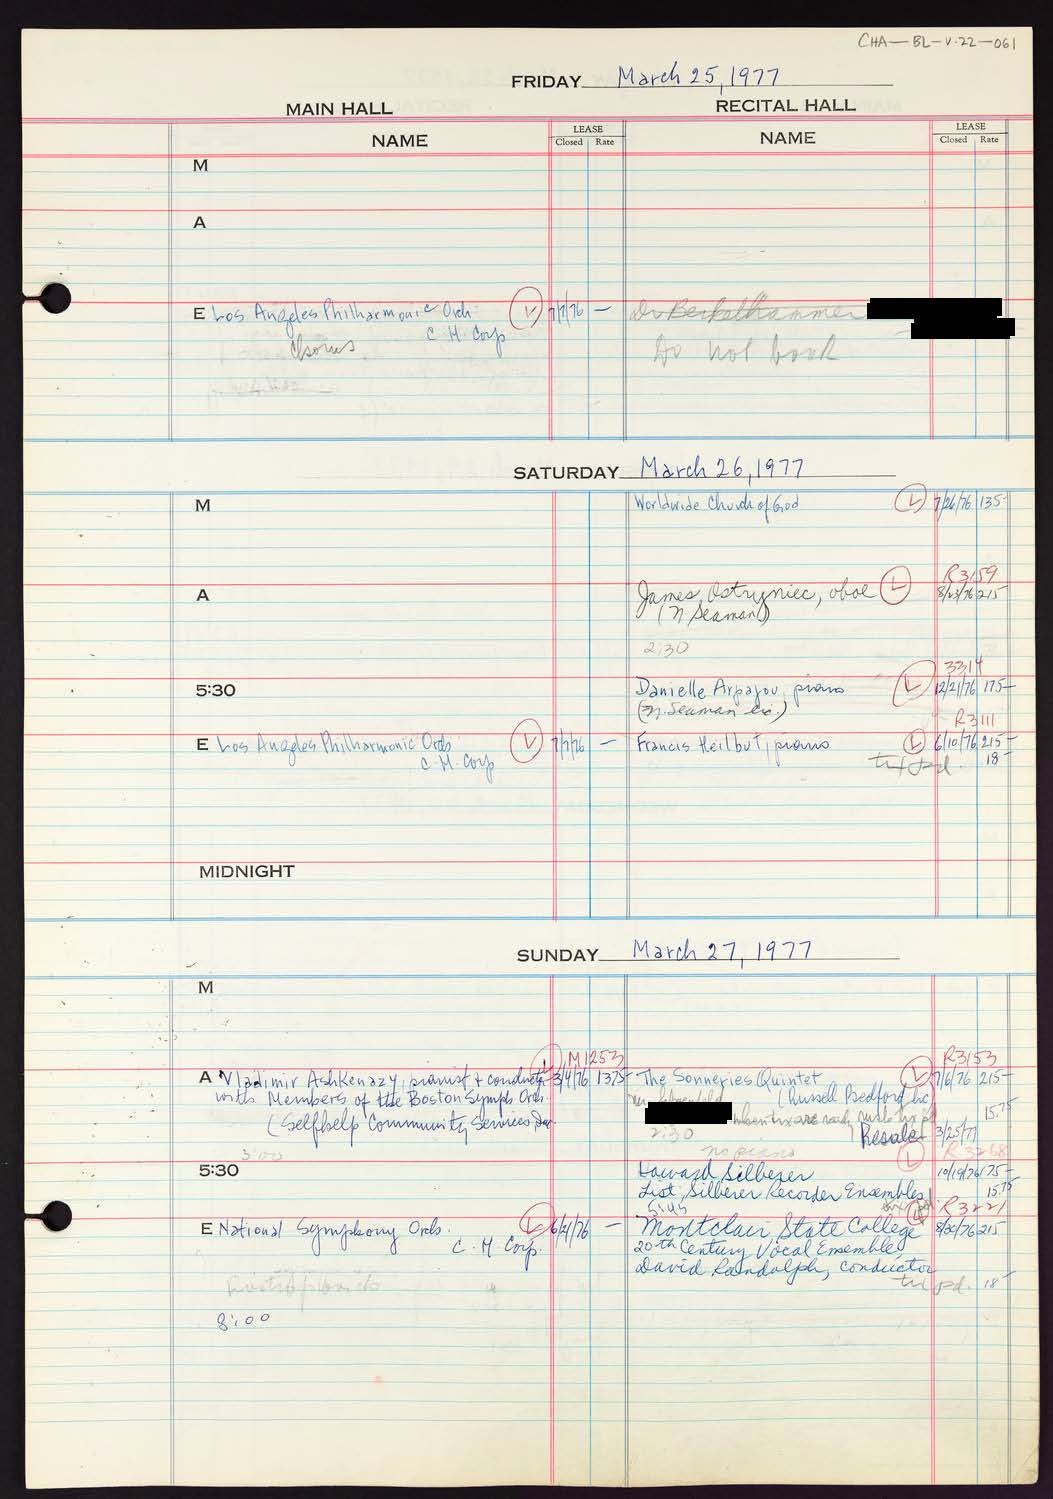 CHA—BL—V.22—061
FRIDAY March 25, 1977
MAIN HALL
RECITAL HALL
NAME
LEASE
Closed Rate
NAME
LEASE
Closed Rate
M
A
E Los Angeles Philharmonic Orch. L 7/7/76 —
C. H. Corp
Chorus
Do not book
SATURDAY March 26, 1977
M
Worldwide Church of God L 7/26/76 135-
A
R3159
James Ostryniec, oboe L 8/23/76 215
(N Seaman)
2:30
5:30
3314
Danielle Arpajou, piano L 12/21/76 175-
(N. Seaman)
E Los Angeles Philharmonic Orch. L 7/7/76 —
C. H. Corp
R3111
Francis Heilbut, piano L 6/10/76 215-
pd. 18-
MIDNIGHT
SUNDAY March 27, 1977
M
M1253
A Vladimir Ashkenazy, pianist + conductor L 3/4/76 1375-
with Members of the Boston Symph. Orch.
(Selfhelp Community Services, Inc.
3:00
R3153
The Sonneries Quintet L 7/6/76 215-
(Russell Bedford, Inc)
15.75
2:30
Resale 3/25/77
no piano
5:30
R3268
Howard Silberer L 10/19/76 175-
List: Silberer Recorder Ensembles 15.75
5:45
E National Symphony Orch. L 6/21/76 —
C. H. Corp.
R3221
Montclair State College L 8/30/76 215
20th Century Vocal Ensemble
David Randolph, conductor
pd. 18-
8:00